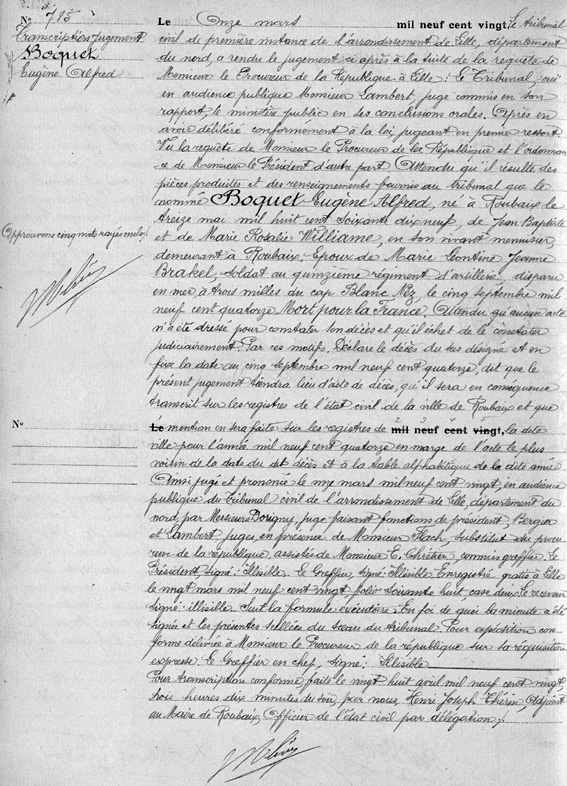 N° 785
Transcription Jugement
Boquet
Eugène Alfred
Approuvons cinq mots rayés nuls
Le Onze mars mil neuf cent vingt, le tribunal
civil de première instance de l'arrondissement de Lille, département
du nord, a rendu le jugement ci après à la suite de la requête de
Monsieur le Procureur de la République à Lille : Le Tribunal, ouï
en audience publique Monsieur Lambert, juge commis en son
rapport, le ministère public en ses conclusions orales. Après en
avoir délibéré conformément à la loi, jugeant en premier ressort
Vu la requête de Monsieur le Procureur de la République et l'ordonnan-
ce de Monsieur le Président d'autre part. Attendu qu'il résulte des
pièces produites et des renseignements fournis au tribunal que le
nommé Boquet Eugène Alfred, né à Roubaix le
treize mai mil huit cent soixante dix neuf, de Jean Baptiste
et de Marie Rosalie Williame, en son vivant menuisier,
demeurant à Roubaix. Epoux de Marie Léontine Jeanne
Brakel, soldat au quinzième régiment d'artillerie, disparu
en mer, à trois milles du cap Blanc Nez, le cinq septembre mil
neuf cent quatorze. Mort pour la France. Attendu qu'aucun acte
n'a été dressé pour constater son décès et qu'il échet de le constater
judiciairement. Par ces motifs. Déclare le décès du sus désigné et en
fixe la date au cinq septembre mil neuf cent quatorze, dit que le
présent jugement tiendra lieu d'acte de décès, qu'il sera en conséquence
transcrit sur les registres de l'état civil de la ville de Roubaix et que
N° Le mention en sera faite sur les registres de mil neuf cent vingt, la dite
ville pour l'année mil neuf cent quatorze en marge de l'acte le plus
voisin de la date du dit décès et à la table alphabétique de la dite année
Ainsi jugé et prononcé le onze mars mil neuf cent vingt, en audience
publique du Tribunal civil de l'arrondissement de Lille, département du
nord, par Messieurs Dorigny, juge faisant fonctions de président, Bergia
et Lambert, juges, en présence de Monsieur Flach, substitut du procu-
reur de la république, assistés de Monsieur E. Chrétien, commis greffier. Le
Président, signé : Illisible. Le Greffier, signé : Illisible. Enregistré, gratis à Lille
le vingt mars mil neuf cent vingt, folio soixante huit case deux, le receveur
signé : illisible. Suit la formule exécutoire. En foi de quoi la minute a été
signée et les présentes scellées du sceau du tribunal. Pour expédition con-
forme délivrée à Monsieur le Procureur de la république sur sa réquisition
expresse. Le Greffier en chef, signé : Illisible
Pour transcription conforme faite le vingt huit avril mil neuf cent vingt
trois heures dix minutes du soir, par nous, Henri Joseph Thérin Adjoint
au Maire de Roubaix, Officier de l'état civil par délégation.